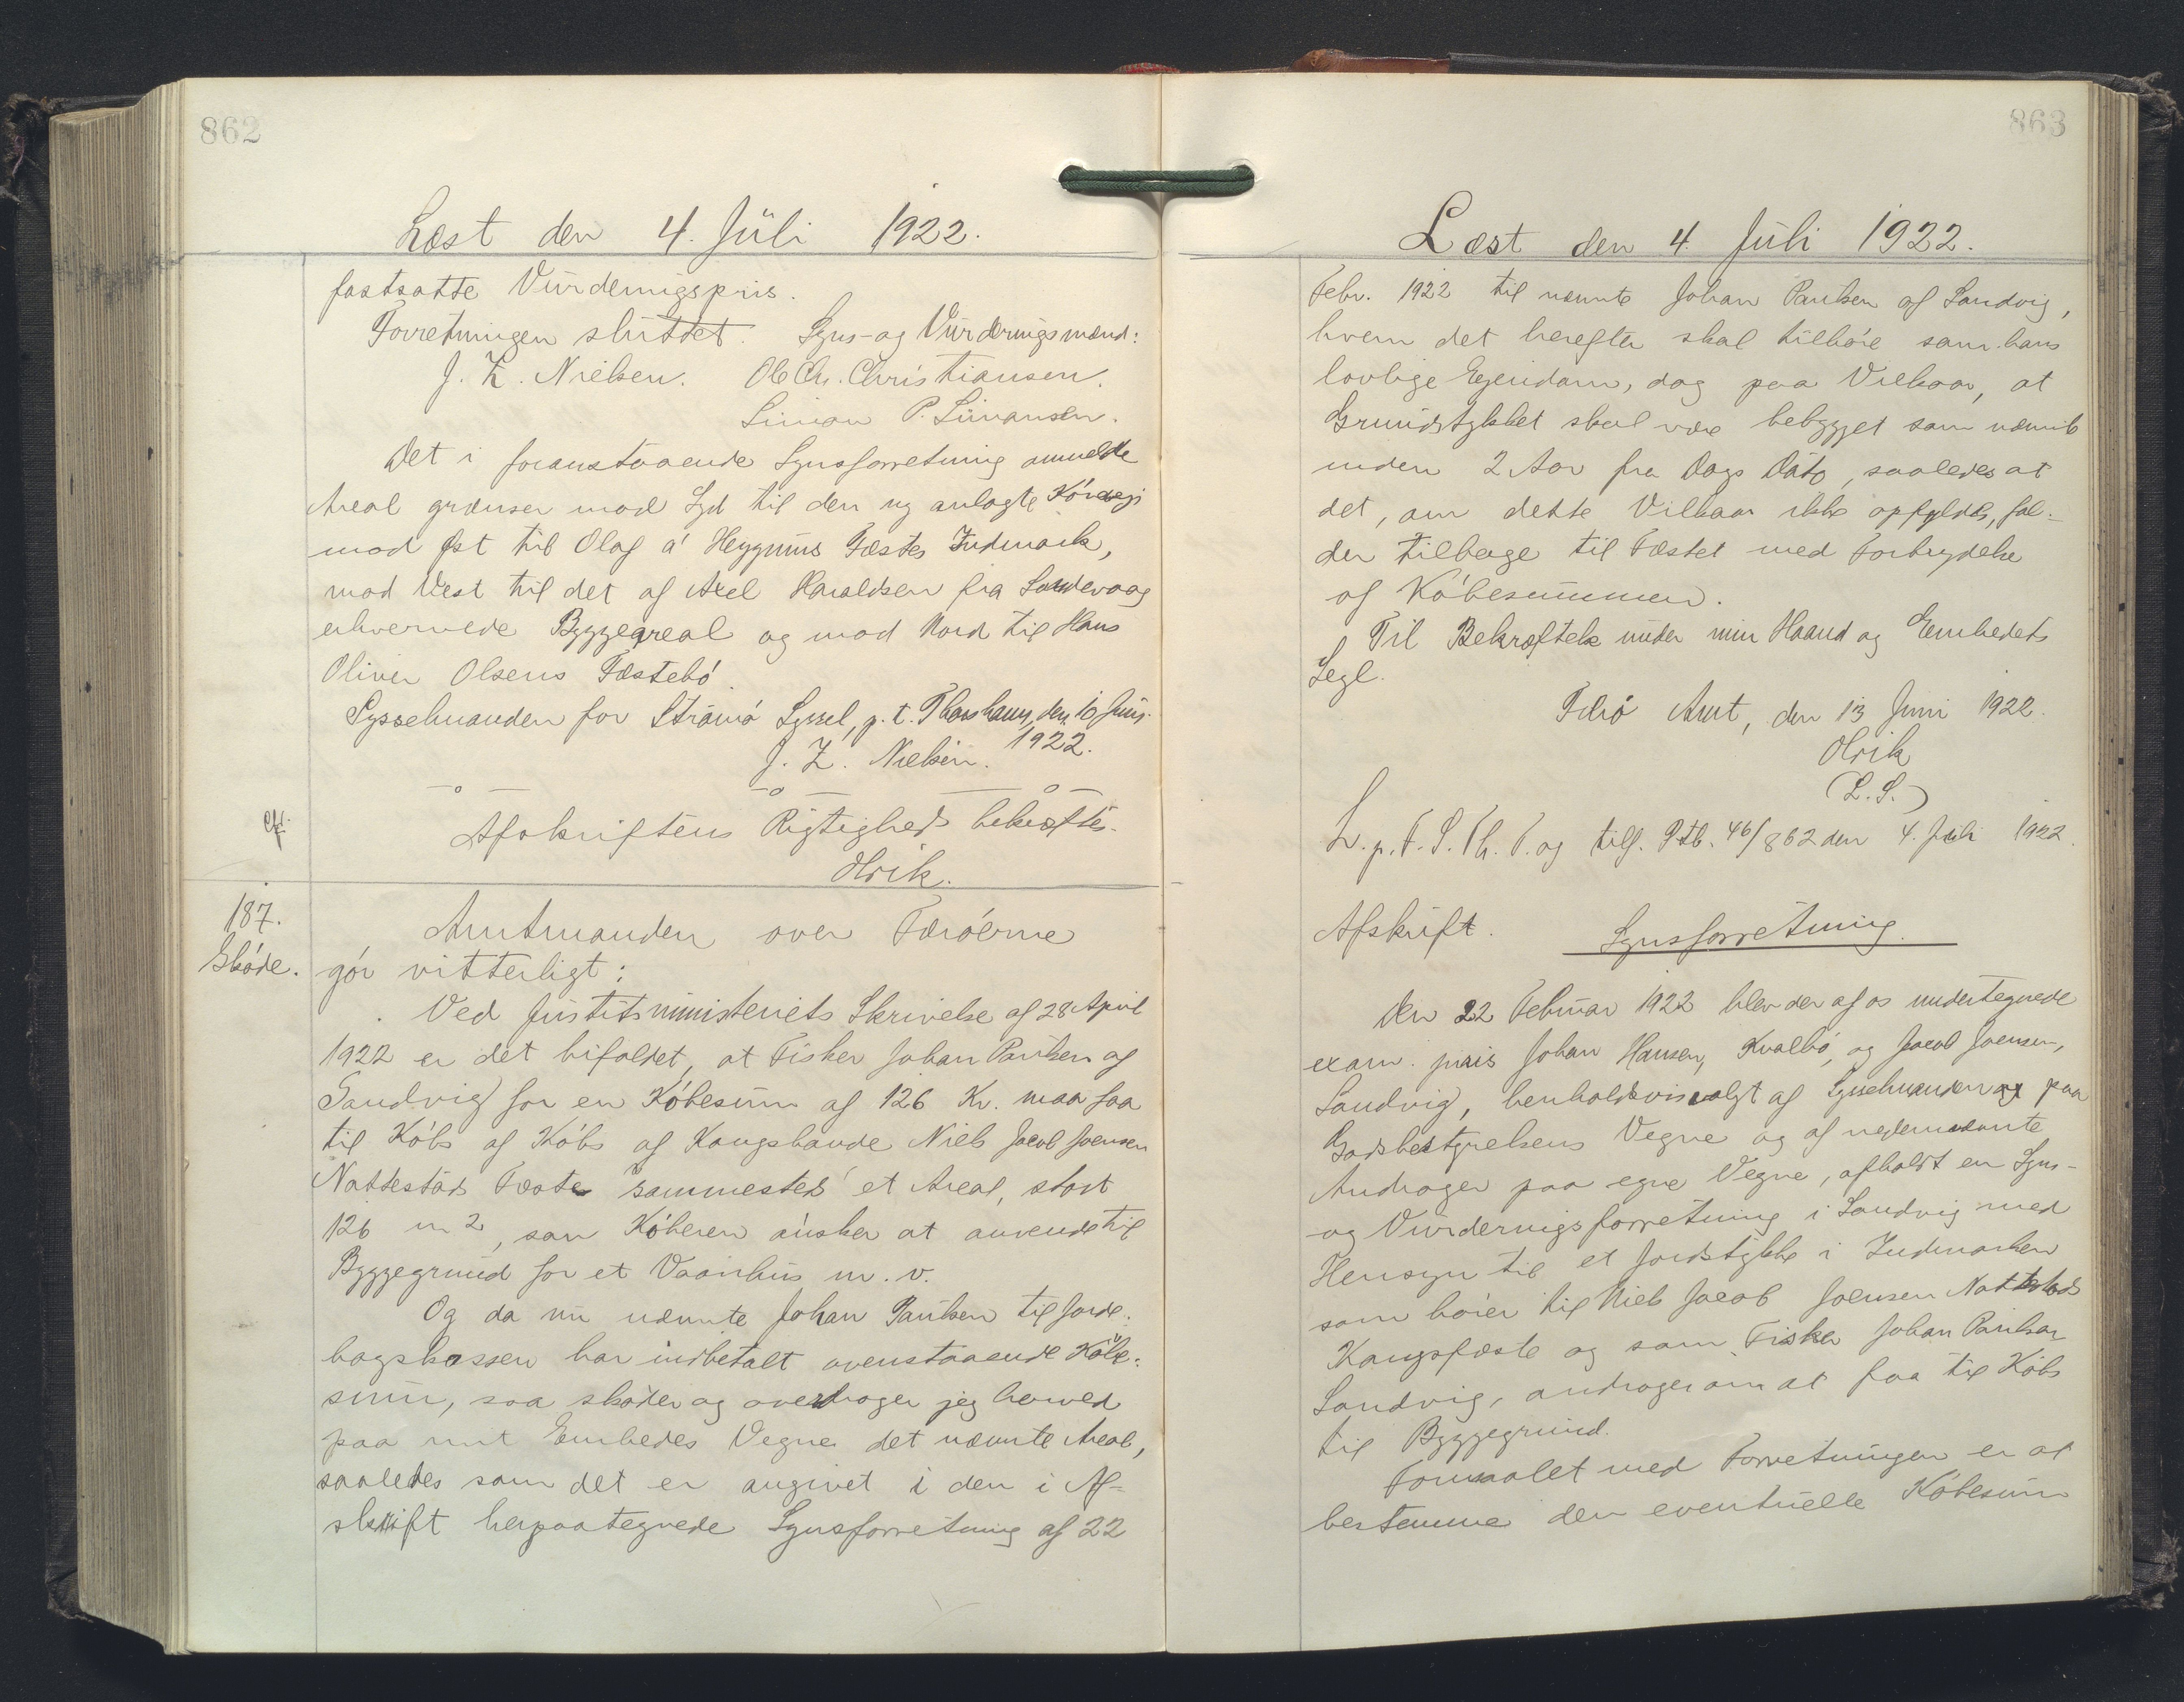 862
Læst den 4. Juli 1922.
fastsatte Vurderingspris.
Forretningen sluttet. Syns- og Vurderingsmænd:
J. Z. Nielsen. Ole Chr. Christiansen.
Simon P. Simonsen.
Det i foranstaaende Synsforretning ommeldte
Areal grænser mod Syd til den ny anlagte Kórevej
mod Øst til Olaf á Heygums Fæstes Indmark,
mod Vest til det af Axel Haraldsen fra Sandevaag
erhvervede Byggeareal og mod Nord til Hans
Oliver Olsens Fæstebó.
Sysselmanden for Strømó Syssel, p. t. Thorshavn, den 10 Juni
1922.
J. Z. Nielsen.
Cfr.
Afskriftens Rigtighed bekræftes.
Olrik.
187.
Skóde.
Amtmanden over Færóerne
gór vitterligt:
Ved Justitsministeriets Skrivelse af 28 April
1922 er det bifaldet, at Fisker Johan Paulsen af
Sandvig for en Kóbesum af 126 Kr. maa faa
til Kóbs af Kóbs af Kongsbonde Niels Jacob Joensen
Nattestad Fæste sammesteds et Areal, stort
126 m2, som Kóberen ónsker at anvende til
Byggegrund for et Vaanhus m. v.
Og da nu nævnte Johan Paulsen til Jorde-
bogskassen har indbetalt ovenstaaende Kóbe-
sum, saa skóder og overdrager jeg herved
paa mit Embedes Vegne det nævnte Areal,
saaledes som det er angivet i den i Af-
skrift herpaategnede Synsforretning af 22
863
Læst den 4. Juli 1922.
Febr. 1922 til nævnte Johan Paulsen af Sandvig,
hvem det herefter skal tilhóre som hans
lovlige Ejendom, dog paa Vilkaar, at
Grundstykket skal være bebygget som nævnt
inden 2 Aar fra Dags Dato, saaledes at
det, om dette Vilkaar ikke opfyldes, fal-
der tilbage til Fæstet med Fortrydelse
af Kóbesummen.
Til Bekræftelse under min Haand og Embedets
Segl.
Færó Amt, den 13 Juni 1922.
Olrik
(L. S.)
L. p. F. S. Th. P. og tilf. Ptb. 46/862 den 4. Juli 1922.
Afskrift. Synsforretning.
Den 22 Februar 1922 blev der af os undertegnede
exam. juris Johan Hansen, Kvalbó, og Jacob Joensen,
Sandvig, henholdsvis valgt af Sysselmanden paa
Godsbestyrelsens Vegne og af nedennævnte
Andrager paa egne Vegne, afholdt en Syns-
og Vurderingsforretning i Sandvig med
Hensyn til et Jordstykke i Indmarken
som hórer til Niels Jacob Joensen Nattestads
Kongsfæste og som Fisker Johan Paulsen
Sandvig, andrager om at faa til Kóbs
til Byggegrund.
Formaalet med Forretningen er at
bestemme den eventuelle Kóbesum